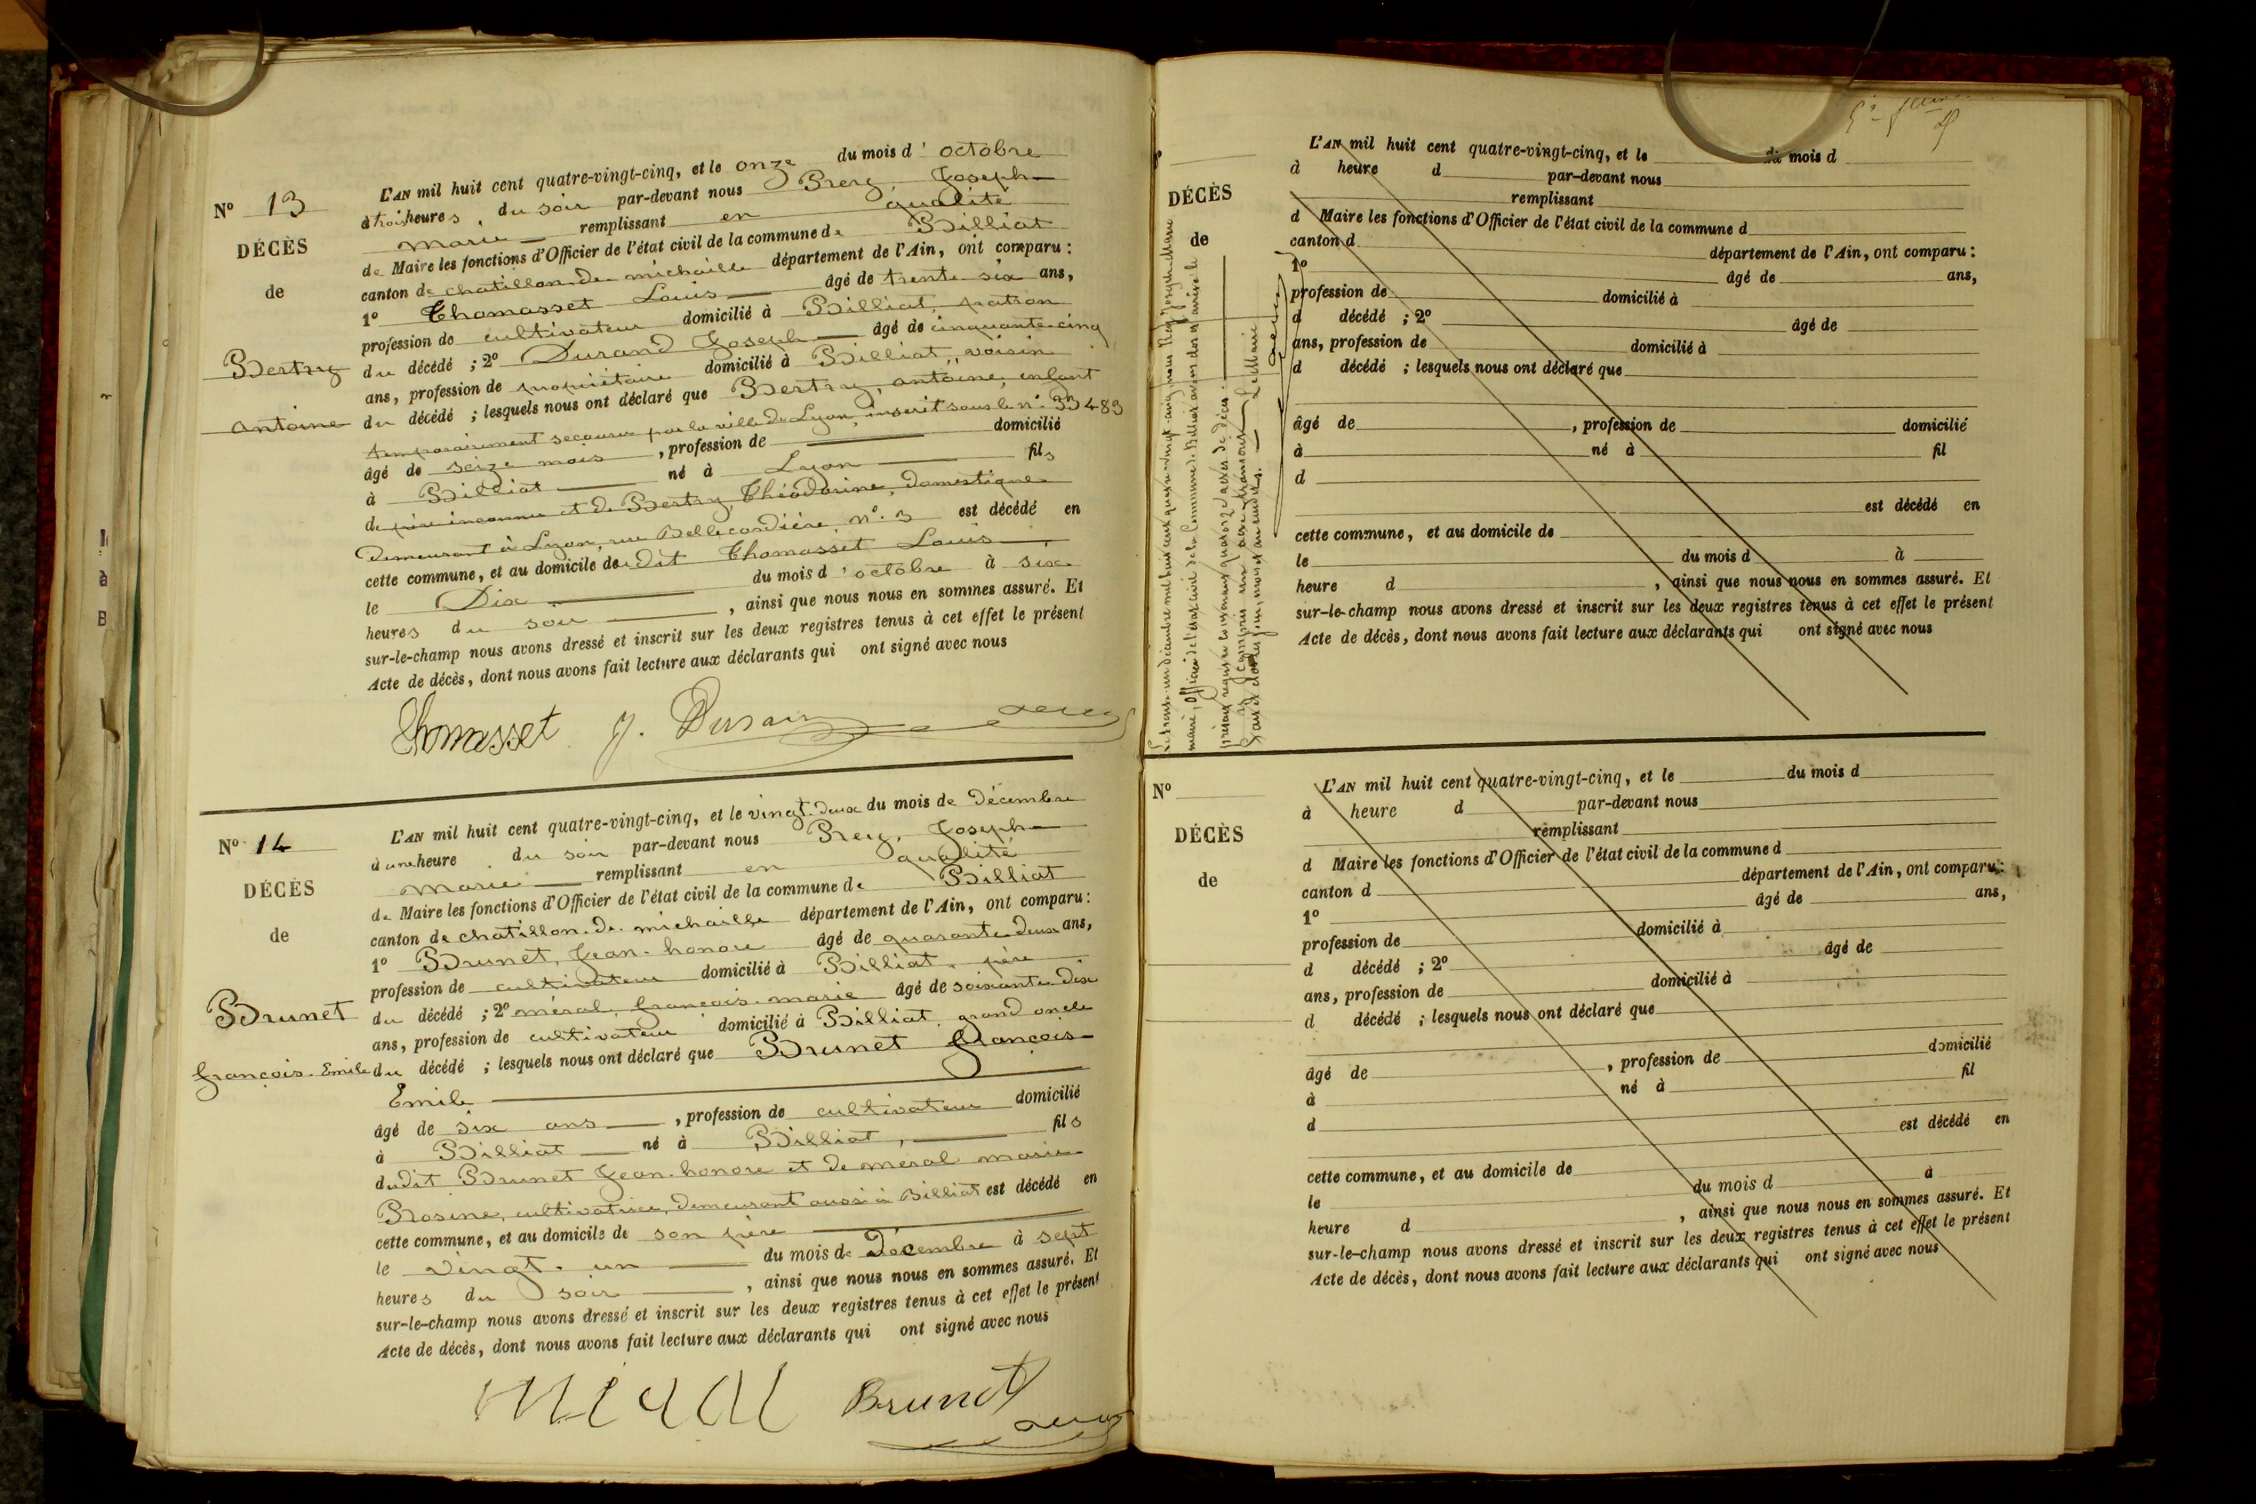 L'AN mil huit cent quatre-vingt-cinq, et le onze du mois d'octobre
à trois heures du soir par-devant nous Prery, Joseph
marie remplissant en qualité
de Maire les fonctions d'Officier de l'état civil de la commune de Billiat
canton de chatillon. de michaille département de l'Ain, ont comparu :
1º Thomasset Louis âgé de trente six ans,
profession de cultivateur domicilié à Billiat, patron
du décédé ; 2º Durand Joseph âgé de cinquante-cinq
ans, profession de propriétaire domicilié à Billiat, voisin
du décédé ; lesquels nous ont déclaré que Bertry, antoine, enfant
temporairement secouru par la ville de Lyon, inscrit sous le nº 33483
âgé de seize mois , profession de domicilié
à Billiat né à Lyon fils
de père inconnu et de Bertry, Théodorine, domestique
demeurant à Lyon, rue Bellecordière, nº. 3 est décédé en
cette commune, et au domicile de dit Thomasset Louis
le Dix du mois d'octobre à six
heures du soir , ainsi que nous nous en sommes assuré. Et
sur-le-champ nous avons dressé et inscrit sur les deux registres tenus à cet effet le présent
Acte de décès, dont nous avons fait lecture aux déclarants qui ont signé avec nous
Nº 13
DÉCÈS
de
Bertry
antoine
Thomasset J. Durand
L'AN mil huit cent quatre-vingt-cinq, et le vingt-deux du mois de Décembre
à une heure du soir par-devant nous Prery, Joseph
marie remplissant en qualité
de Maire les fonctions d'Officier de l'état civil de la commune de Billiat
canton de chatillon. de. michaille département de l'Ain, ont comparu :
1º Brunet, Jean-honore âgé de quarante deux ans,
profession de cultivateur domicilié à Billiat, père
du décédé ; 2º méral, françois-marie âgé de soixante dix
ans, profession de cultivateur domicilié à Billiat, grand oncle
du décédé ; lesquels nous ont déclaré que Brunet françois
Emile
âgé de six ans , profession de cultivateur domicilié
à Billiat né à Billiat, fils
dudit Brunet Jean-honore et de meral marie
Rosine, cultivatrice, demeurant aussi à Billiat est décédé en
cette commune, et au domicile de son père
le vingt. un du mois de Décembre à sept
heures du soir , ainsi que nous nous en sommes assuré. Et
sur-le-champ nous avons dressé et inscrit sur les deux registres tenus à cet effet le présent
Acte de décès, dont nous avons fait lecture aux déclarants qui ont signé avec nous
Nº 14
DÉCÈS
de
Brunet
françois. Emile
Méral Brunet
L'AN mil huit cent quatre-vingt-cinq, et le du mois d
à heure d par-devant nous
remplissant
d Maire les fonctions d'Officier de l'état civil de la commune d
canton d département de l'Ain, ont comparu :
1º âgé de ans,
profession de domicilié à
d décédé ; 2º âgé de
ans, profession de domicilié à
d décédé ; lesquels nous ont déclaré que
âgé de , profession de domicilié
à né à fil
d
est décédé en
cette commune, et au domicile de
le du mois d à
heure d , ainsi que nous nous en sommes assuré. Et
sur-le-champ nous avons dressé et inscrit sur les deux registres tenus à cet effet le présent
Acte de décès, dont nous avons fait lecture aux déclarants qui ont signé avec nous
DÉCÈS
de
Le trente-un décembre mil huit cent quatre-vingt-cinq, nous Joseph Marie
maire, Officier de l'état civil de la Commune de Billiat avons clos et arrêté le
présent registre contenant quatorze actes de décès.
Le Maire
L'AN mil huit cent quatre-vingt-cinq, et le du mois d
à heure d par-devant nous
remplissant
d Maire les fonctions d'Officier de l'état civil de la commune d
canton d département de l'Ain, ont comparu :
1º âgé de ans,
profession de domicilié à
d décédé ; 2º âgé de
ans, profession de domicilié à
d décédé ; lesquels nous ont déclaré que
âgé de , profession de domicilié
à né à fil
d
est décédé en
cette commune, et au domicile de
le du mois d à
heure d , ainsi que nous nous en sommes assuré. Et
sur-le-champ nous avons dressé et inscrit sur les deux registres tenus à cet effet le présent
Acte de décès, dont nous avons fait lecture aux déclarants qui ont signé avec nous
Nº
DÉCÈS
de